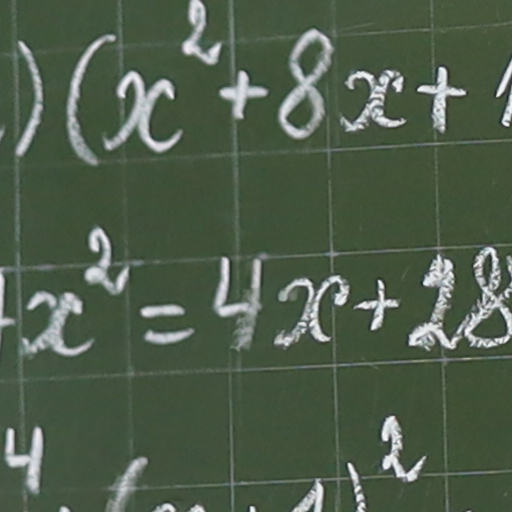 )(x²+8x+1
x²=4x+28
4 2